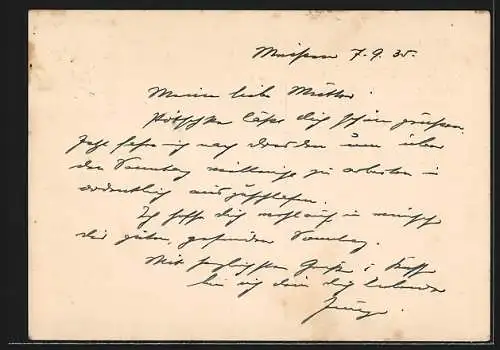 Meissen 7.9.35.
Meine liebe Mutter.
läßt dich schön grüßen.
Jetzt fahre ich nach Dresden um über
den Sonntag zu arbeiten u
ordentlich auszuschlafen.
Ich hoffe dich wohlauf u wünsche
dir guten, gesunden Sonntag.
Mit herzlichsten Grüße
bin ich dein dich liebender